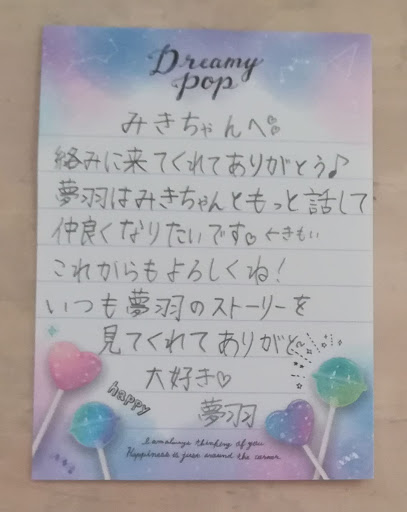 Dreamy
pop
みきちゃんへ♡
絡みに来てくれてありがとう♪
夢羽はみきちゃんともっと話して
仲良くなりたいです♡ ←きもい
これからもよろしくね!
いつも夢羽のストーリーを
見てくれてありがと〜
大好き♡
夢羽
happy
I am always thinking of you.
Happiness is just around the corner.